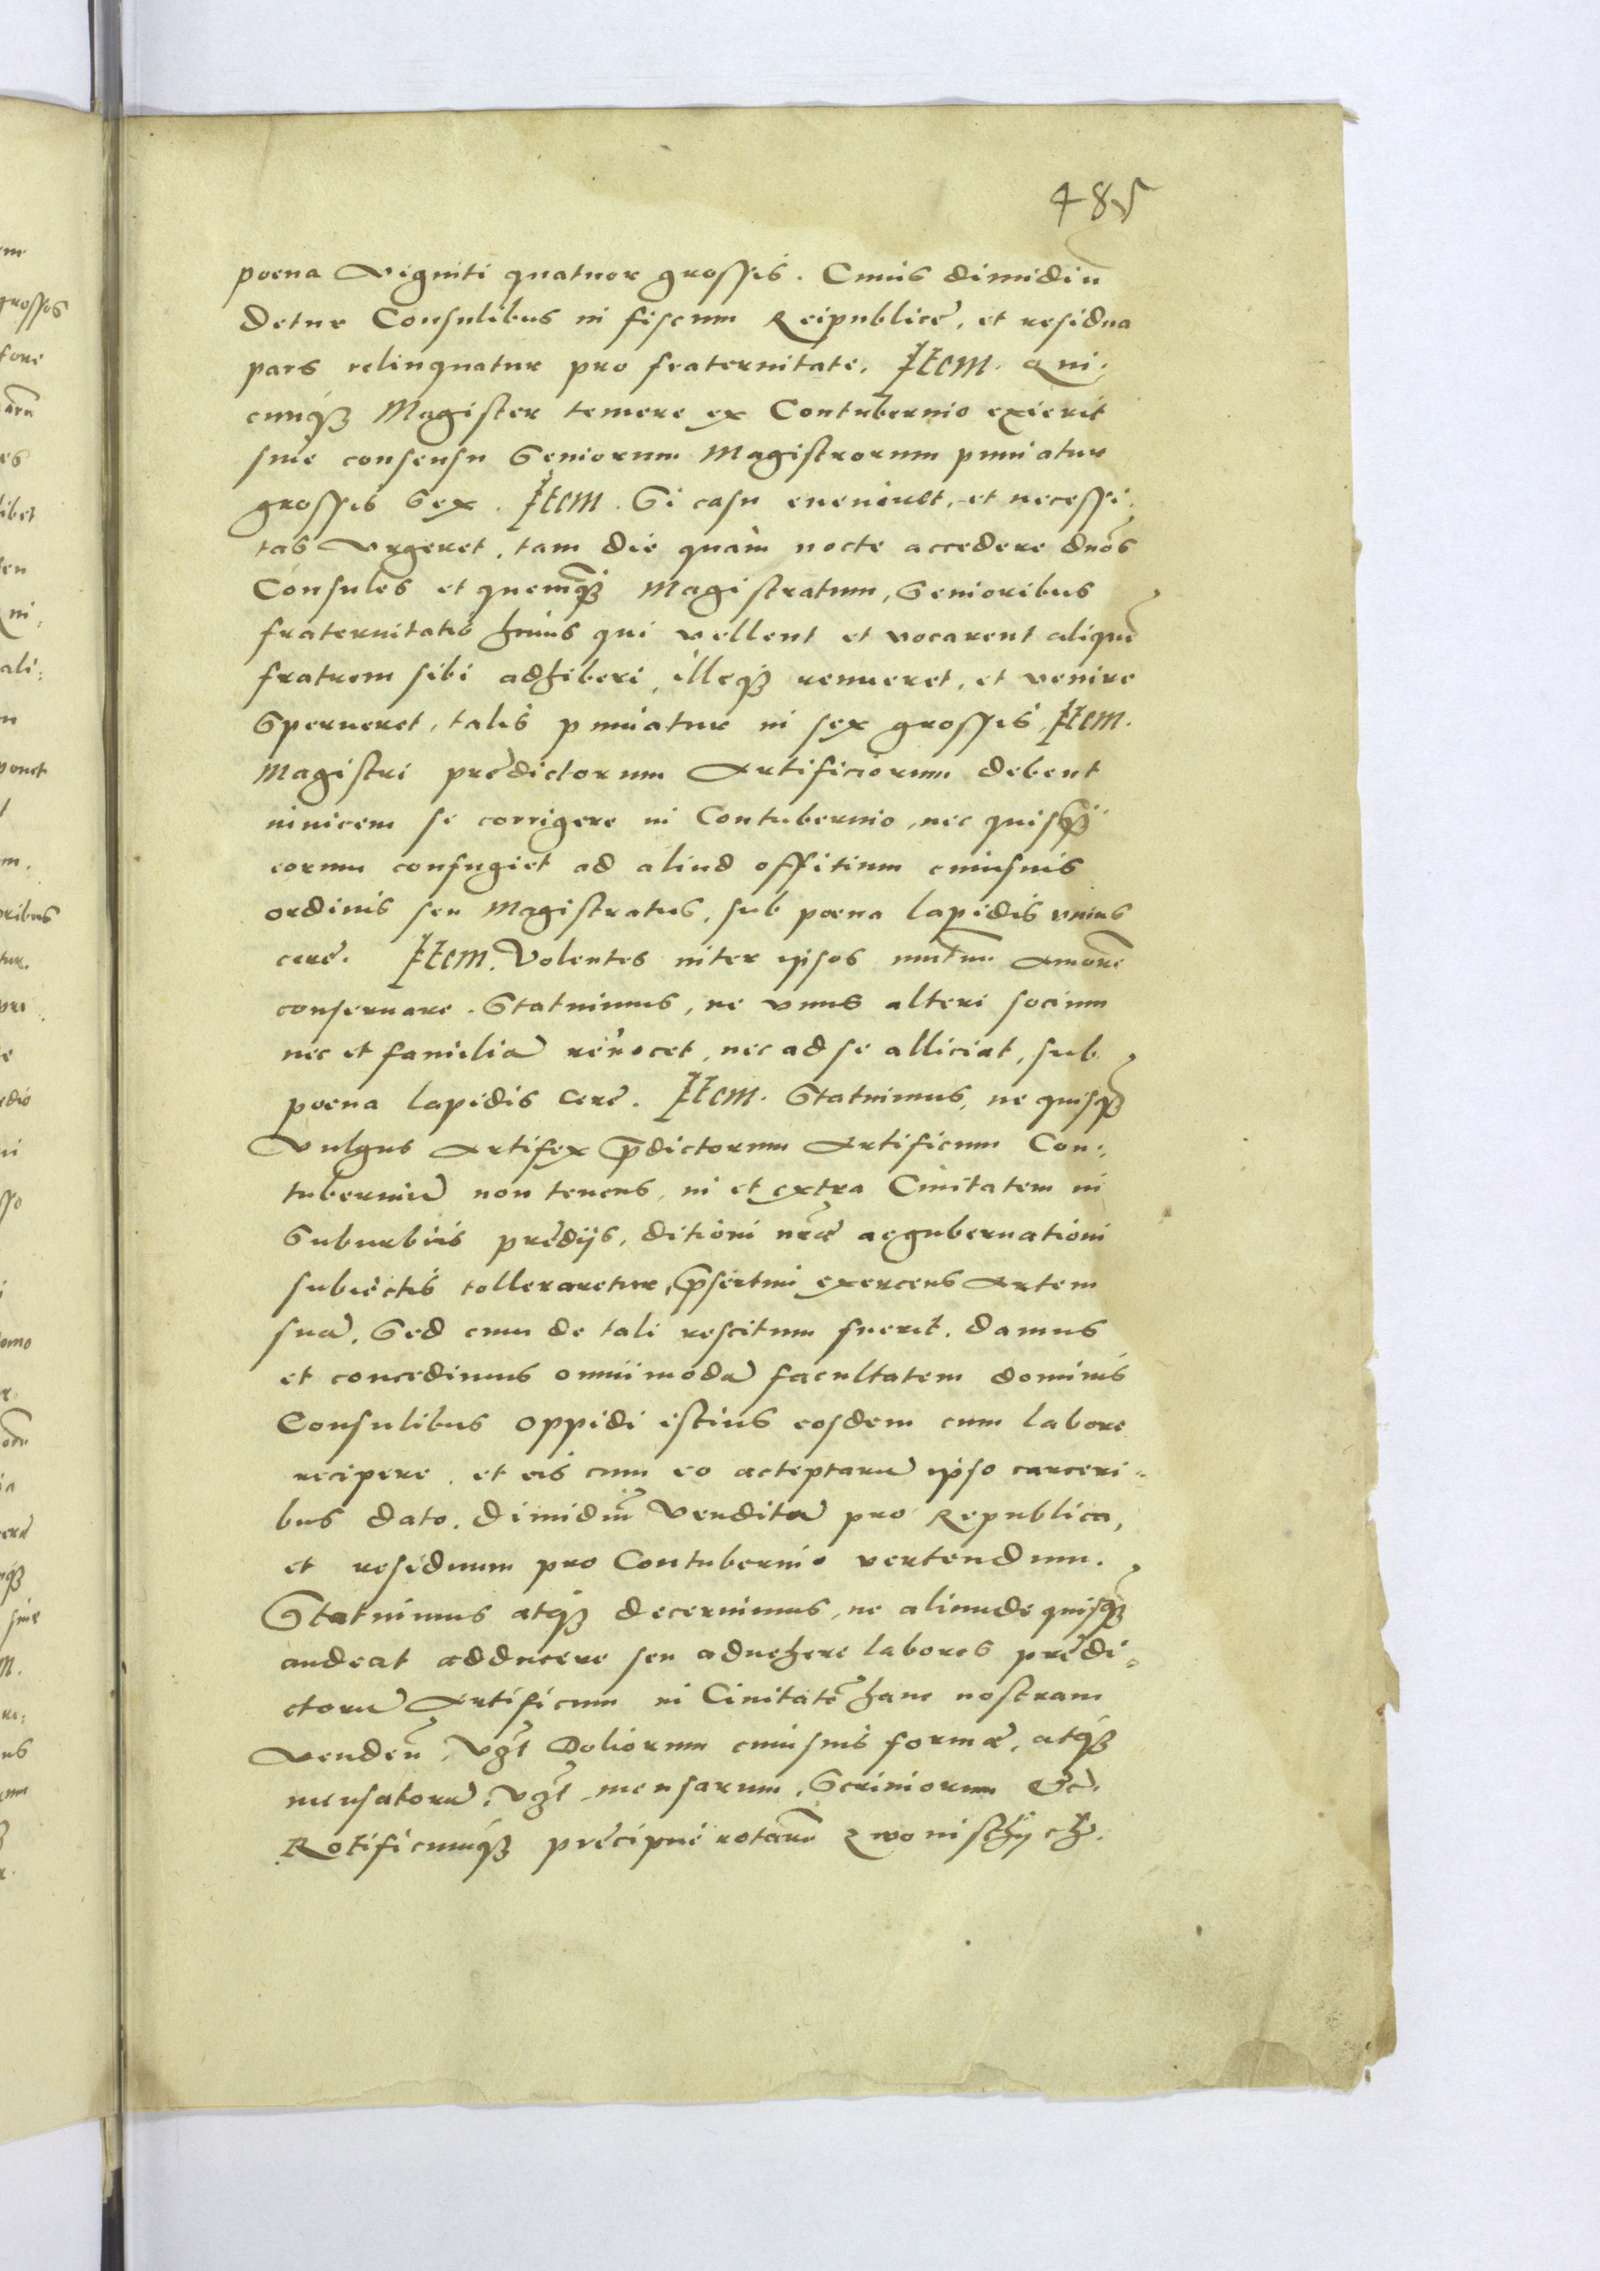 485
poena Viginti quatuor grossis. Cuius dimidiū
detur Consulibus in fiscum Reipublicę, et residua
pars relinquatur pro fraternitate. Item. Qui-
cunqꝫ Magister temere ex Contubernio exierit
sine consensu Seniorum Magistrorum puniatur
grossis Sex. Item. Si casu eueniret, et necessi-
tas Vrgeret, tam die quàm nocte accedere dños
Consules et quemqꝫ Magistratum, Senioribus
fraternitatis huius qui vellent et vocarent aliquē
fratrem sibi adhiberi, illeqꝫ renueret, et venire
Sperneret, talis puniatur in sex grossis. Item.
Magistri prędictorum Artificiorum debent
inuicem se corrigere in Contubernio, nec quisqꝫ
eorum confugiet ad aliud offitium cuiusuis
ordinis seu Magistratus, sub poena lapidis vnius
cerę. Item. Volentes inter ipsos mutuū Amorē
conseruare. Statuimus, ne vnus alteri socium
nec et familiā reuocet, nec ad se alliciat, sub
poena lapidis Cerę. Item. Statuimus, ne quisqꝫ
Vulgus Artifex p̄dictorum Artificum Con-
tuberniū non tenens, in et extra Ciuitatem in
Suburbiis prędijs, ditioni nr̄ae ac gubernationi
subiectis tolleraretur, p̄sertim exercens Artem
suā. Sed cum de tali rescitum fuerit. damus
et concedimus omnimodā facultatem dominis
Consulibus Oppidi istius eosdem cum labore
recipere, et eis cum eo acceptarū ipso carceri-
bus dato. Dimidiū Venditā pro Republica,
et residuum pro Contubernio vertendum.
Statuimus atqꝫ decernimus, ne aliunde quisqꝫ
audeat adducere seu aduehere labores prędi-
ctorū Artificum in Ciuitatē hanc nostram
Vendeñ, Vꝫt Doliorum cuiusuis formæ, atqꝫ
mensatorū, Vꝫt mensarum, Scriniorum &c.
Rotificumqꝫ pręcipuè rotarū